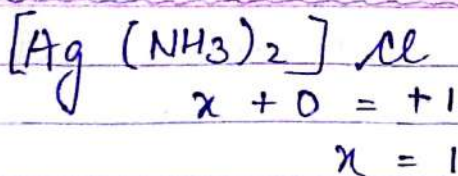 [Ag (NH3)2] Cl
x + 0 = +1
x = 1